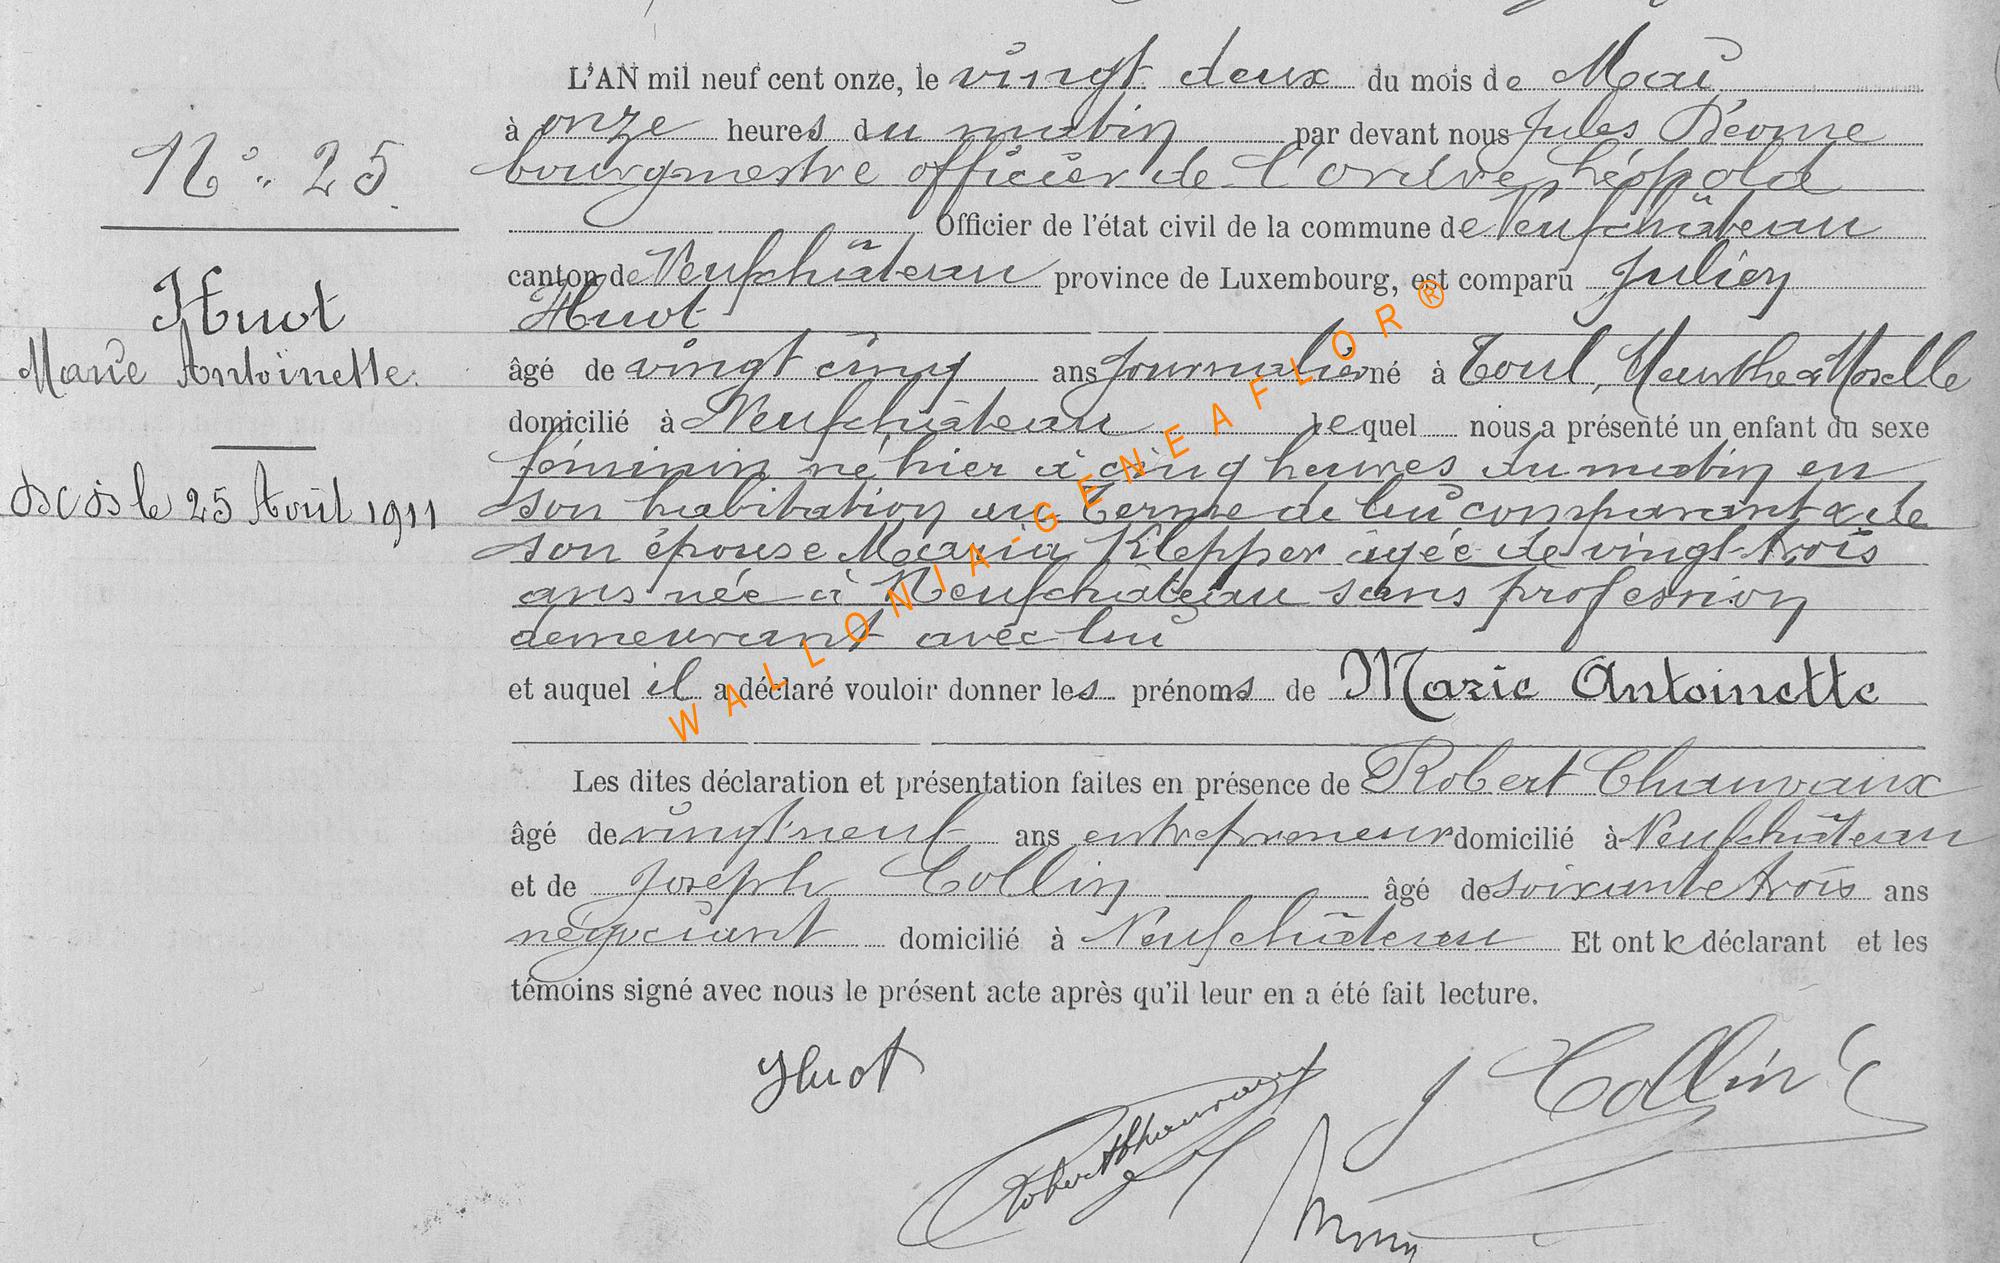 N° 25
Huot
Marie Antoinette.
Dcds le 25 Août 1911
L'AN mil neuf cent onze, le vingt deux du mois de Mai
à onze heures du matin par devant nous Jules
bourgmestre officier de l'ordre Léopold
Officier de l'état civil de la commune de Neufchâteau
canton de Neufchâteau province de Luxembourg, est comparu Julien
Huot
âgé de vingt cinq ans journalier né à Toul, Meurthe & Moselle
domicilié à Neufchâteau lequel nous a présenté un enfant du sexe
féminin né hier à cinq heures du matin en
son habitation au Terme de lui comparant & de
son épouse Maria Klepper âgée de vingt-trois
ans née à Neufchâteau sans profession
demeurant avec lui
et auquel il a déclaré vouloir donner les prénoms de Marie Antoinette
Les dites déclaration et présentation faites en présence de Robert Chauvaux
âgé de vingt neuf ans entrepreneur domicilié à Neufchâteau
et de Joseph Collin âgé de soixante trois ans
négociant domicilié à Neufchâteau Et ont le déclarant et les
témoins signé avec nous le présent acte après qu'il leur en a été fait lecture.
Huot
Robert Chauvaux
J Collin
WALLONIA-GENEAFLOR®